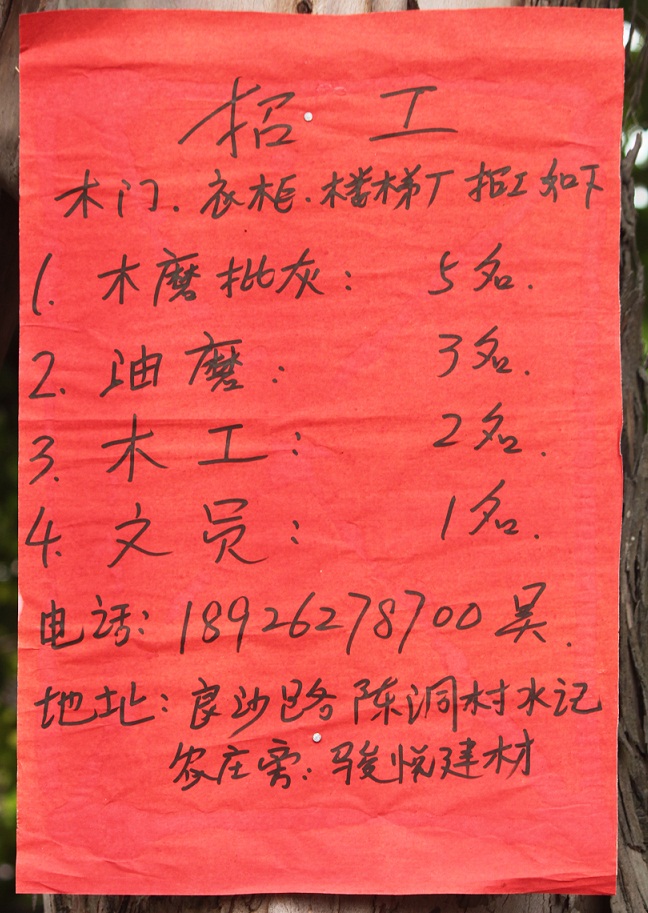 招工
木门.衣柜.楼梯厂招工如下
1. 木磨批灰： 5名.
2. 油磨： 3名.
3. 木工： 2名.
4. 文员： 1名.
电话：18926278700 吴.
地址：良沙路陈洞村水记
农庄旁：骏悦建材